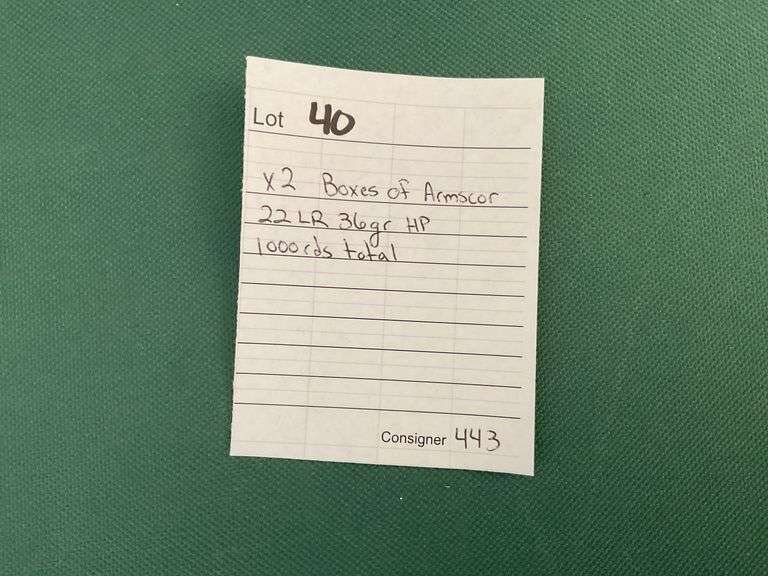 Lot 40
x2 Boxes of Armscor
22 LR 36gr HP
1000 rds total
Consigner 443